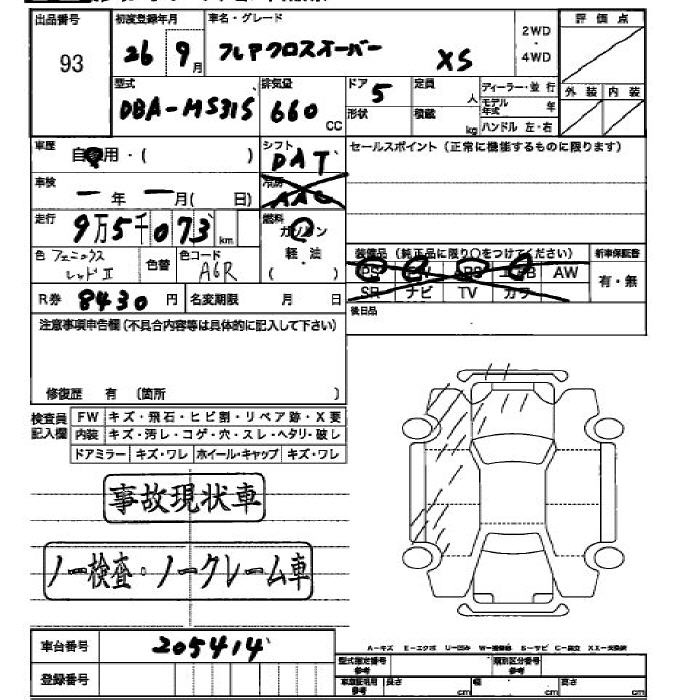 出品番号 初度登録年月 車名・グレード 評価点
93 26 9月 フレアクロスオーバー XS 2WD・4WD
型式 排気量 ドア 定員 ディーラー・並行 外装 内装
DBA-MS31S 660 CC 5 人 モデル年式 年
形状 積載 kg ハンドル 左・右
車歴 自家用・( ) シフト DAT セールスポイント(正常に機能するものに限ります)
車検 ー年ー月( 日) 冷房 AAC
走行 9万5千073 km 燃料 ガソリン
軽・油
( )
色 フェニックスレッドII 色替 色コード A6R 装備品(純正品に限り〇をつけてください) 新車保証書
PS PW ABS エアB AW 有・無
R券 8430円 名変期限 月 日 SR ナビ TV カワ
注意事項申告欄(不具合内容等は具体的に記入して下さい) 後日品
修復歴 有 (箇所 )
検査員記入欄 FW キズ・飛石・ヒビ割・リペア跡・X要
内装 キズ・汚レ・コゲ・穴・スレ・ヘタリ・破レ
ドアミラー キズ・ワレ ホイール・キャップ キズ・ワレ
事故現状車
ノー検査・ノークレーム車
車台番号 205414
A-キズ E-エクボ U-凹み W-補修跡 S-サビ C-腐食 XX-交換済
登録番号 型式指定番号 参考 類別区分番号 参考
車庫証明用 参考 長さ cm 幅 cm 高さ cm